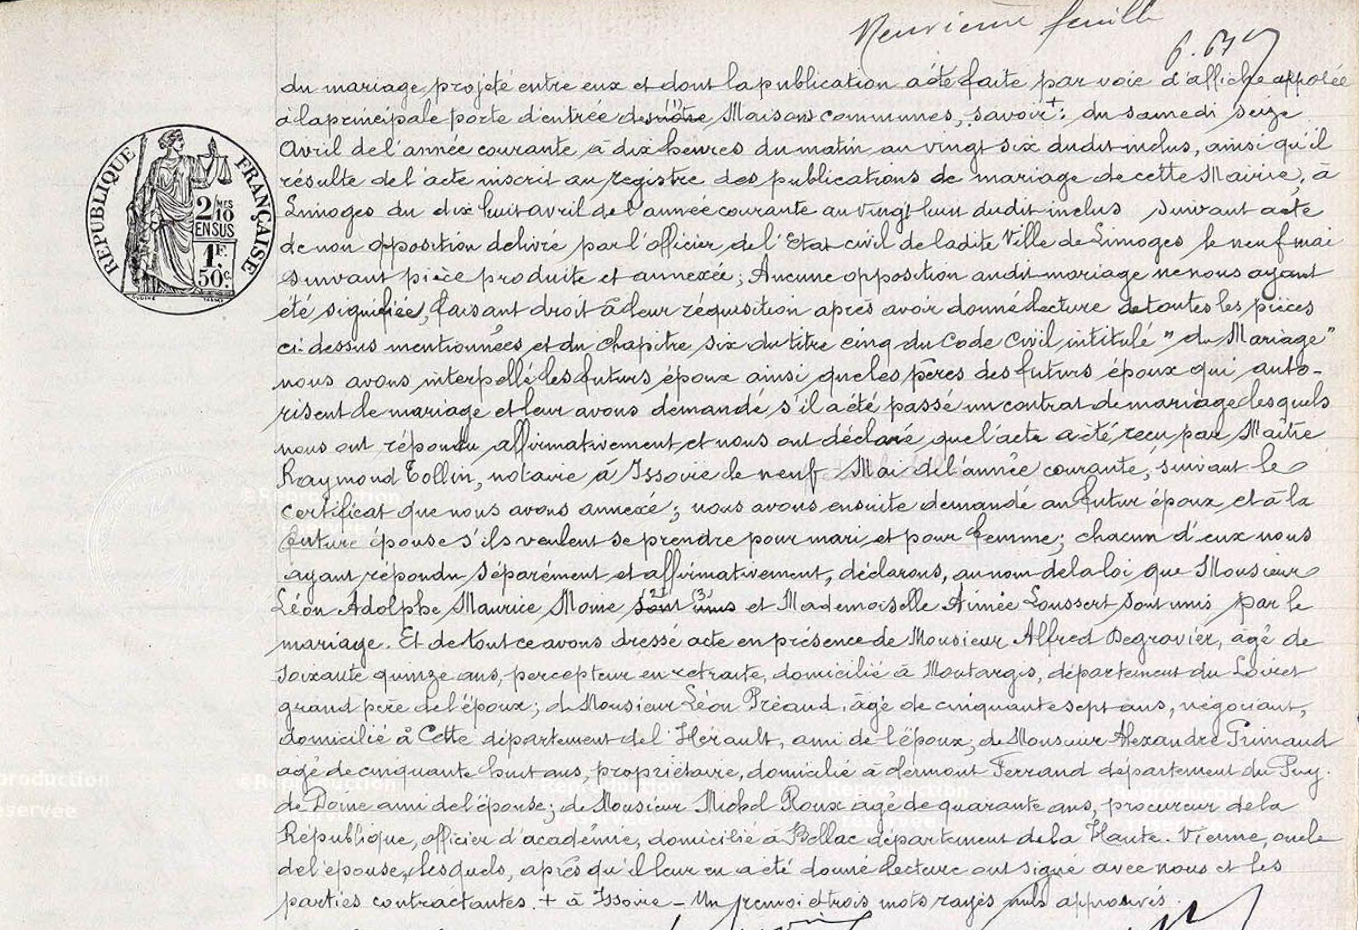 Neuvième feuille
du mariage projeté entre eux et dont la publication a été faite par voie d'affiche apposée
à la principale porte d'entrée des notre Maisons communes, savoir +: du samedi seize
Avril de l'année courante à dix heures du matin au vingt six dudit inclus, ainsi qu'il
résulte de l'acte inscrit au registre des publications de mariage de cette Mairie; à
Limoges du dix huit avril de l'année courante au vingt huit dudit inclus suivant acte
de non opposition délivré par l'officier de l'Etat civil de ladite Ville de Limoges le neuf mai
suivant pièce produite et annexée; Aucune opposition audit mariage ne nous ayant
été signifiée, faisant droit à leur réquisition après avoir donné lecture de toutes les pièces
ci-dessus mentionnées et du chapitre six du titre cinq du Code Civil intitulé "du Mariage"
nous avons interpellé les futurs époux ainsi que les pères des futurs époux qui auto-
risent de mariage et leur avons demandé s'il a été passé un contrat de mariage lesquels
nous ont répondu affirmativement et nous ont déclaré que l'acte a été reçu par Maître
Raymond Tollin, notaire à Issoire le neuf Mai de l'année courante, suivant le
certificat que nous avons annexé; nous avons ensuite demandé au futur époux et à la
future épouse s'ils veulent se prendre pour mari et pour femme; chacun d'eux nous
ayant répondu séparément et affirmativement, déclarons, au nom de la loi que Monsieur
Léon Adolphe Maurice Mome sont unis et Mademoiselle Aimée Loussert sont unis par le
mariage. Et de tout ce avons dressé acte en présence de Monsieur Alfred Degravier, âgé de
soixante quinze ans, percepteur en retraite, domicilié à Montargis, département du Loiret
grand père de l'époux; de Monsieur Léon Préaud, âgé de cinquante sept ans, négociant,
domicilié à Cette département de l'Hérault, ami de l'époux; de Monsieur Alexandre Grimaud
agé de cinquante huit ans, propriétaire, domicilié à Clermont Ferrand département du Puy-
de Dôme ami de l'épouse; de Monsieur Michel Roux âgé de quarante ans, procureur de la
République, officier d'académie, domicilié à Bellac département de la Haute-Vienne, oncle
de l'épouse, lesquels, après qu'il leur en a été donné lecture ont signé avec nous et les
parties contractantes. + à Issoire - Un renvoi et trois mots rayés nuls approuvés.
RÉPUBLIQUE FRANÇAISE
2/10
MES
EN SUS
1F.
50c.
©Reproduction
réservée